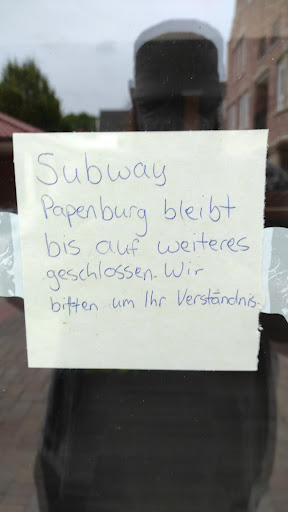 Subway
Papenburg bleibt
bis auf weiteres
geschlossen. Wir
bitten um Ihr Verständnis.